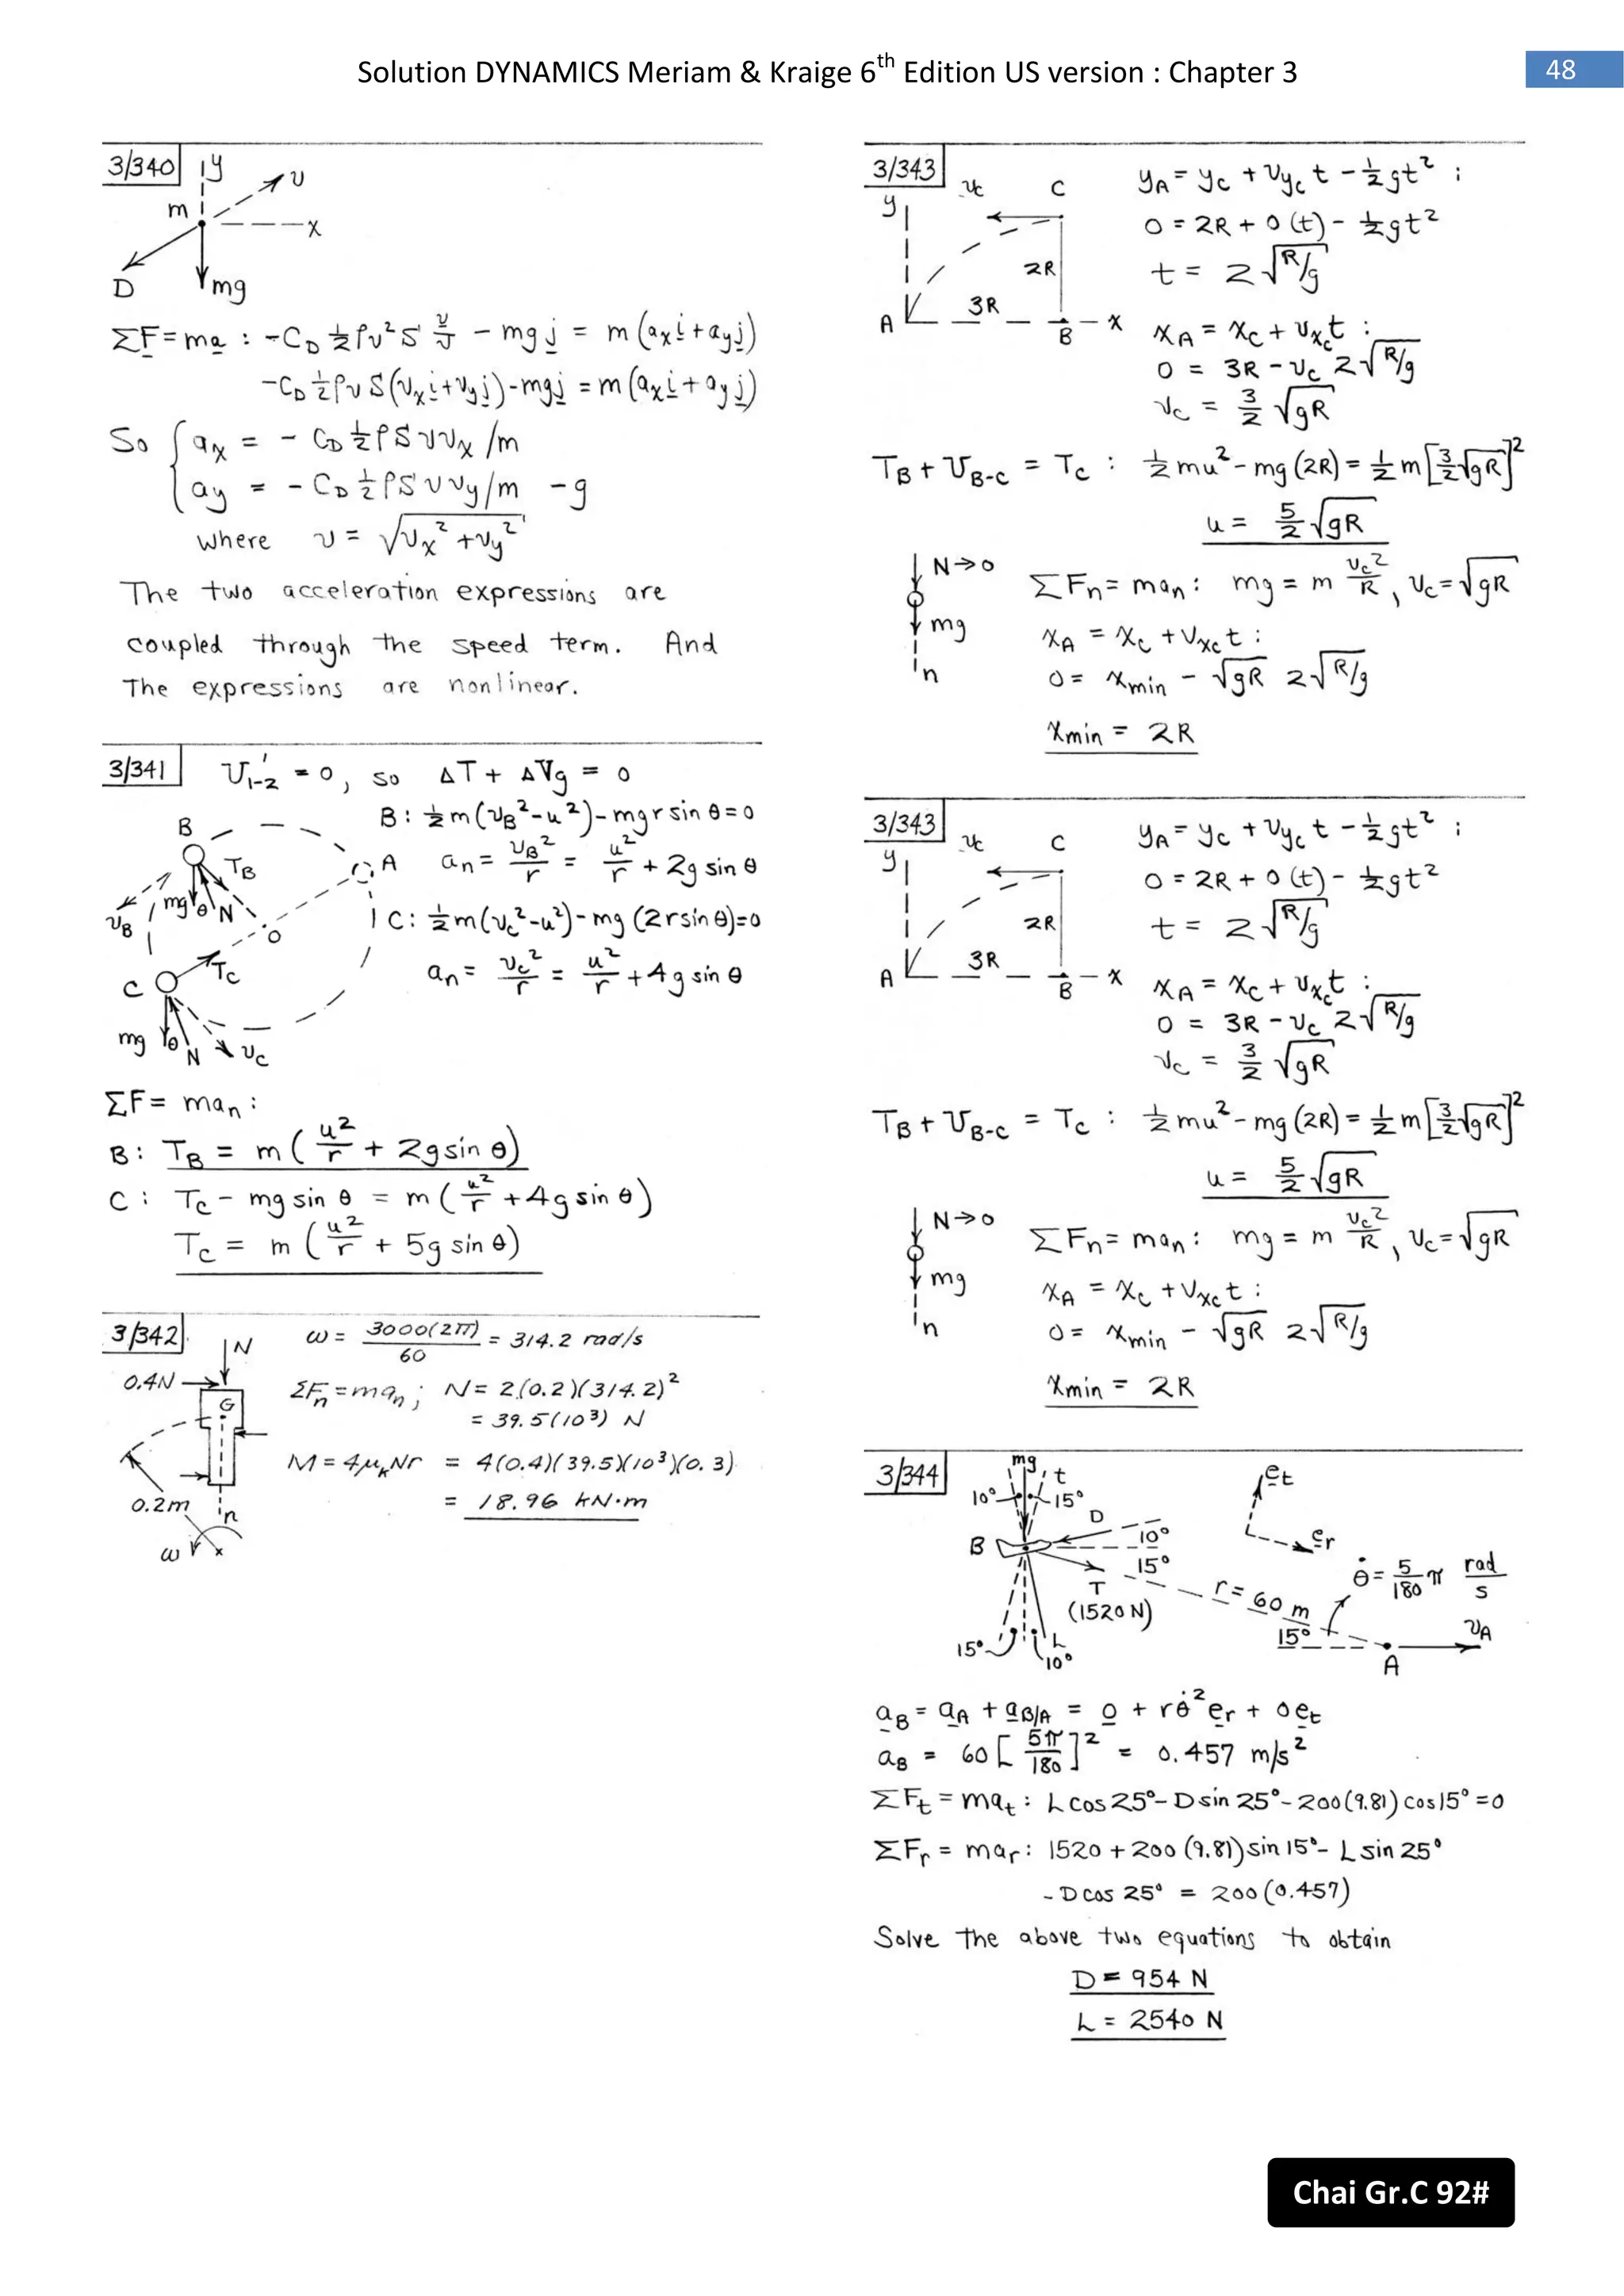 Solution DYNAMICS Meriam & Kraige 6th Edition US version : Chapter 3
48
3/340
y
v
m
x
D
mg
ΣF = ma : -C_D ½ρv²S v/v - mg j = m(a_x i + a_y j)
-C_D ½ρvS(v_x i + v_y j) - mg j = m(a_x i + a_y j)
So { a_x = - C_D ½ρS v v_x /m
a_y = - C_D ½ρS v v_y/m - g
where v = √(v_x² + v_y²)
The two acceleration expressions are
coupled through the speed term. And
the expressions are nonlinear.
3/341
U'_1-2 = 0, so ΔT + ΔV_g = 0
B: ½m(v_B² - u²) - mgr sin θ = 0
B
A
a_n = v_B²/r = u²/r + 2g sin θ
T_B
mg θ N
v_B
O
C: ½m(v_C² - u²) - mg(2r sin θ) = 0
T_C
C
a_n = v_C²/r = u²/r + 4g sin θ
mg θ N v_C
ΣF = ma_n :
B: T_B = m(u²/r + 2g sin θ)
C: T_C - mg sin θ = m(u²/r + 4g sin θ)
T_C = m(u²/r + 5g sin θ)
3/342
N
ω = 3000(2π)/60 = 314.2 rad/s
0.4N
G
ΣF_n = ma_n ; N = 2(0.2)(314.2)²
= 39.5(10³) N
M = 4μ_k Nr = 4(0.4)(39.5)(10³)(0.3)
= 18.96 kN·m
0.2m
n
ω
3/343
y
v_C
C
2R
3R
A
B
x
y_A = y_C + v_yC t - ½gt² ;
0 = 2R + 0(t) - ½gt²
t = 2√(R/g)
x_A = x_C + v_xC t :
0 = 3R - v_C 2√(R/g)
v_C = 3/2 √(gR)
T_B + U_B-C = T_C : ½mu² - mg(2R) = ½m[3/2 √(gR)]²
u = 5/2 √(gR)
N→0
mg
n
ΣF_n = ma_n : mg = m v_C²/R , v_C = √(gR)
x_A = x_C + v_xC t :
0 = x_min - √(gR) 2√(R/g)
x_min = 2R
3/343
y
v_C
C
2R
3R
A
B
x
y_A = y_C + v_yC t - ½gt² ;
0 = 2R + 0(t) - ½gt²
t = 2√(R/g)
x_A = x_C + v_xC t :
0 = 3R - v_C 2√(R/g)
v_C = 3/2 √(gR)
T_B + U_B-C = T_C : ½mu² - mg(2R) = ½m[3/2 √(gR)]²
u = 5/2 √(gR)
N→0
mg
n
ΣF_n = ma_n : mg = m v_C²/R , v_C = √(gR)
x_A = x_C + v_xC t :
0 = x_min - √(gR) 2√(R/g)
x_min = 2R
3/344
mg
t
10°
15°
D
10°
15°
B
T
(1520 N)
15°
L
10°
r = 60 m
15°
e_t
e_r
θ̇ = 5/180 π rad/s
v_A
A
a_B = a_A + a_B/A = 0 + rθ̇² e_r + 0e_t
a_B = 60[5π/180]² = 0.457 m/s²
ΣF_t = ma_t : L cos 25° - D sin 25° - 200(9.81) cos 15° = 0
ΣF_r = ma_r : 1520 + 200(9.81) sin 15° - L sin 25°
- D cos 25° = 200(0.457)
Solve the above two equations to obtain
D = 954 N
L = 2540 N
Chai Gr.C 92#